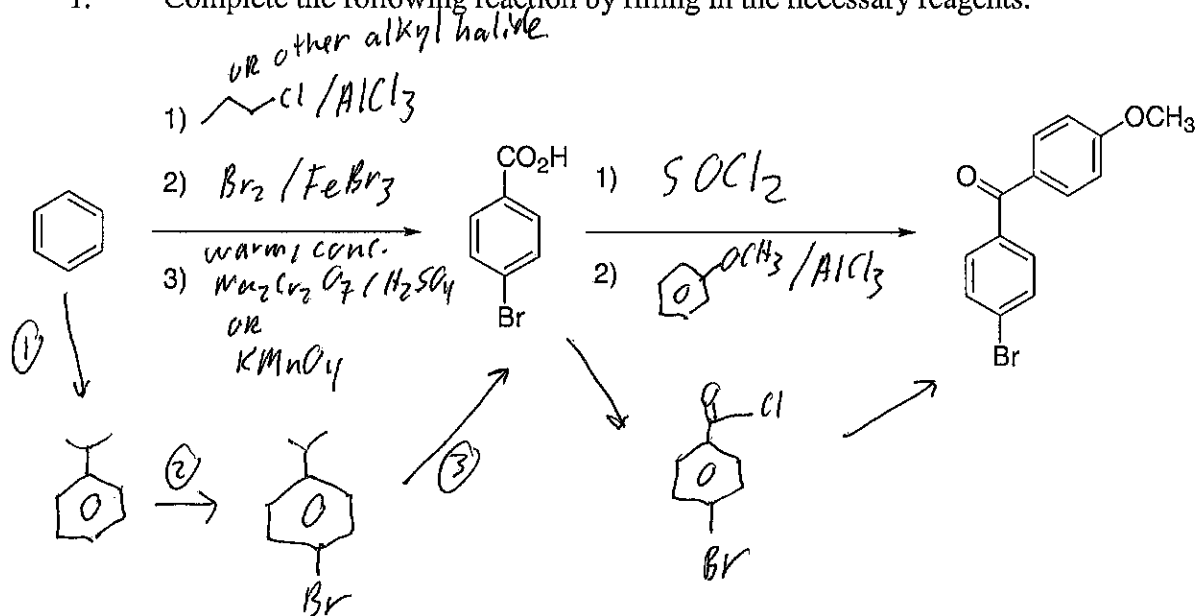 1. Complete the following reaction by filling in the necessary reagents.
OR other alkyl halide
1) Cl / AlCl3
2) Br2 / FeBr3
warm, conc.
3) Na2Cr2O7 / H2SO4
OR
KMnO4
CO2H
Br
1) SOCl2
2) OCH3 / AlCl3
O
OCH3
Br
1
2
Br
3
O
Cl
Br